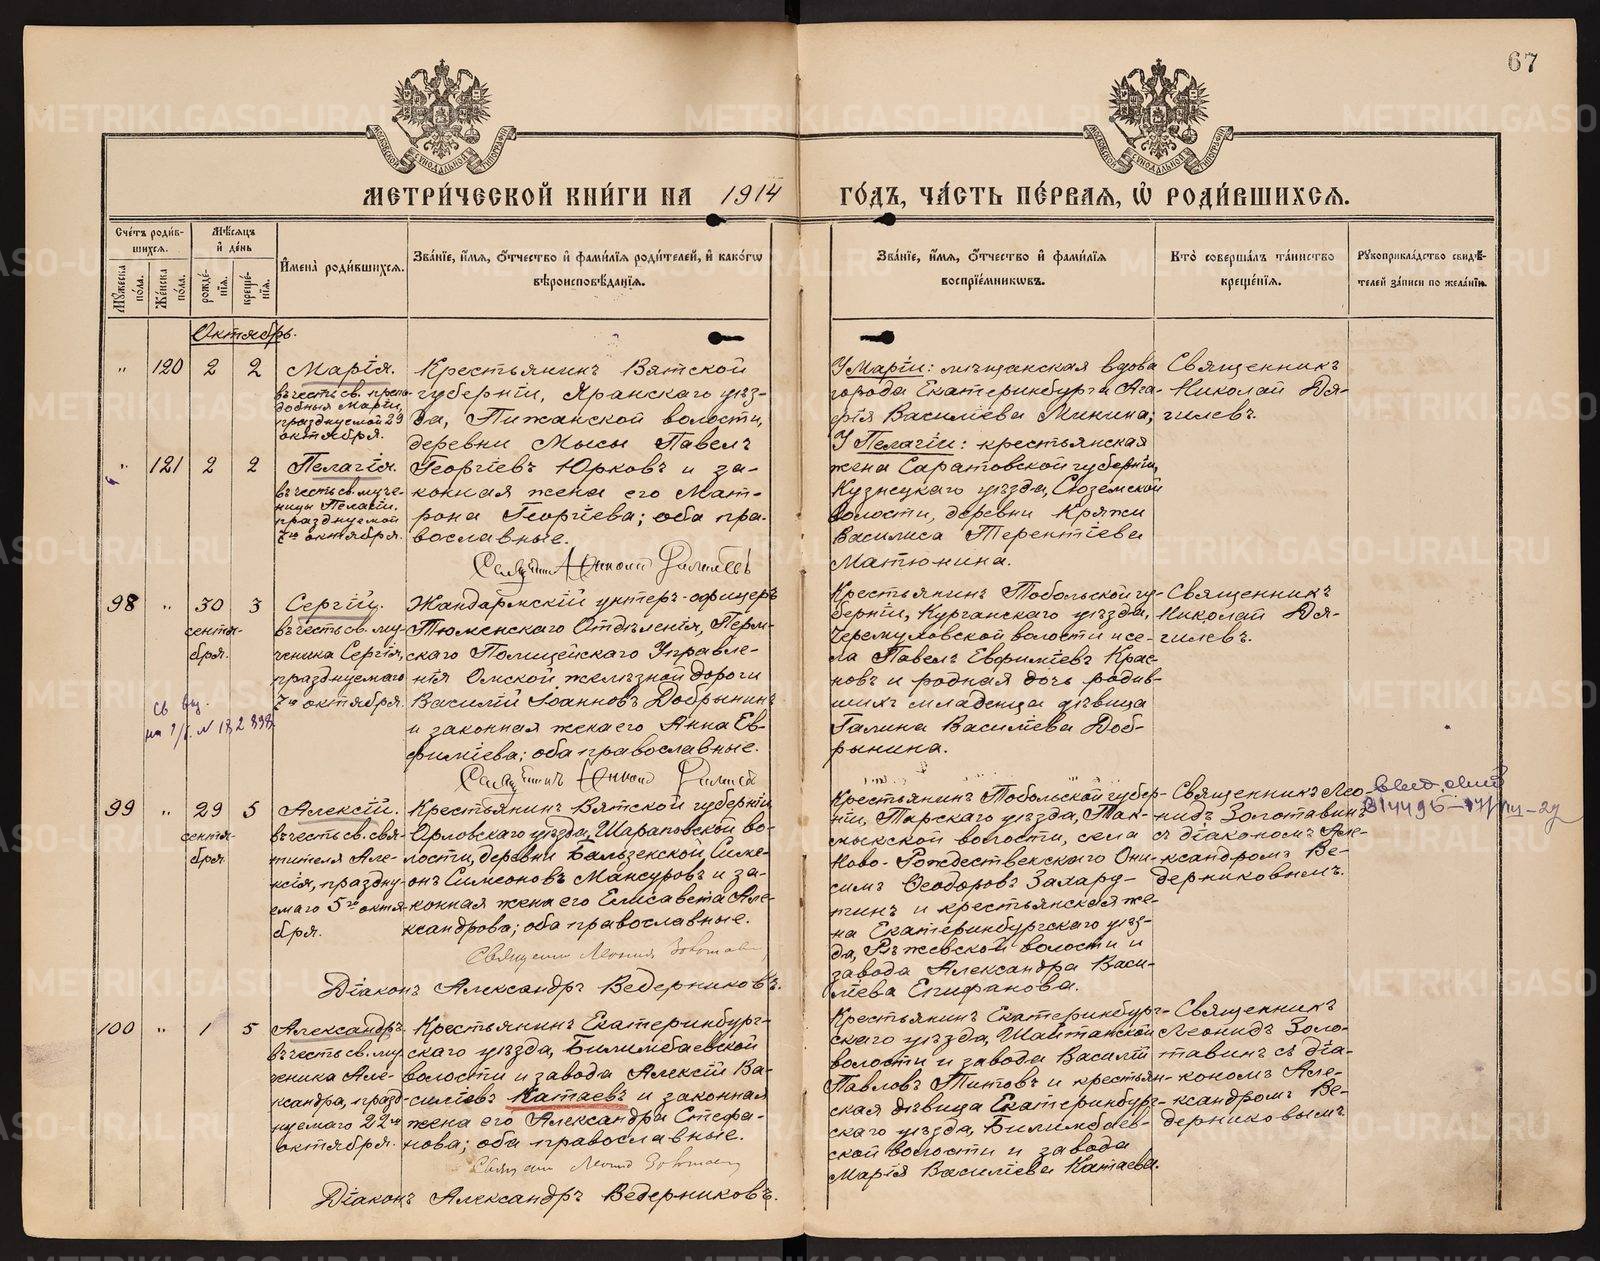 67
МЕТРИ́ЧЕСКОЙ КНИ́ГИ НА 1914 ГО́ДЪ, ЧА́СТЬ ПЕ́РВАЯ, Ѡ҆ РОДИ́ВШИХСЯ.
Сче́тъ роди́в-
шихся.
Мѣ́сяцъ
и҆ де́нь
Му́жеска по́ла.
Же́нска по́ла.
рожде́-
нїѧ.
креще́-
нїѧ.
И҆мена̀ роди́вшихся.
Зва́нїе, и҆́мя, о҆́тчество и҆ фами́лїя роди́телей, и҆ како́гѡ
вѣроисповѣ́данїя.
Зва́нїе, и҆́мя, о҆́тчество и҆ фами́лїя
воспрїе́мникѡвъ.
Кто̀ соверша́лъ та́инство
креще́нїя.
Рꙋкоприкла́дство свидѣ́-
телей за́писи по жела́нїю.
Октябрь.
" 120 2 2 Марія.
въ честь св. препо-
добныя Маріи,
празднуемой 29
октября.
" 121 2 2 Пелагія.
въ честь св. муче-
ницы Пелагіи,
празднуемой
7го октября.
Крестьянинъ Вятской
губерніи, Яранскаго уѣз-
да, Пижанской волости,
деревни Мысы Павелъ
Георгіевъ Юрковъ и за-
конная жена его Мат-
рона Георгіева; оба пра-
вославные.
У Маріи: мѣщанская вдова
города Екатеринбурга Ага-
фія Василіева Минина;
У Пелагіи: крестьянская
жена Саратовской губерніи,
Кузнецкаго уѣзда, Сюземской
волости, деревни Кряжи
Василиса Терентіева
Матюнина.
Священникъ
Николай Дя-
гилевъ.
98 " 30 сентя-
бря. 3 Сергій.
въ честь св. му-
ченика Сергія,
празднуемаго
7го октября.
Жандармскій унтеръ-офицеръ
Тюменскаго Отдѣленія, Перм-
скаго Полицейскаго Управле-
нія Омской желѣзной дороги
Василій Іоанновъ Добрынинъ
и законная жена его Анна Ев-
фиміева; оба православные.
Крестьянинъ Тобольской гу-
берніи, Курганскаго уѣзда,
Черемуховской волости и се-
ла Павелъ Евфиміевъ Крас-
новъ и родная дочь родив-
шихъ младенца дѣвица
Галина Василіева Доб-
рынина.
Священникъ
Николай Дя-
гилевъ.
99 " 29 сентя-
бря 5 Алексій.
въ честь св. свя-
тителя Але-
ксія, праздну-
емаго 5го октя-
бря.
Крестьянинъ Вятской губерніи
Орловскаго уѣзда, Шараповской во-
лости, деревни Бальзекской Симе-
онъ Симеоновъ Мансуровъ и за-
конная жена его Елисавета Але-
ксандрова; оба православные.
Діаконъ Александръ Ведерниковъ.
Крестьянинъ Тобольской губер-
ніи, Тарскаго уѣзда, Так-
мыкской волости, села
Ново-Рождественскаго Они-
симъ Ѳеодоровъ Захард-
тинъ и крестьянская же-
на Екатеринбургскаго уѣз-
да, Режевской волости и
завода Александра Васи-
ліева Епифанова.
Священникъ Лео-
нидъ Золотавинъ
съ діакономъ Але-
ксандромъ Ве-
дерниковымъ.
100 " 1 5 Александръ.
въ честь св. му-
ченика Але-
ксандра, празд-
нуемаго 22го
октября.
Крестьянинъ Екатеринбург-
скаго уѣзда, Билимбаевской
волости и завода Алексій Ва-
силіевъ Катаевъ и законная
жена его Александра Стефа-
нова; оба православные.
Діаконъ Александръ Ведерниковъ.
Крестьянинъ Екатеринбург-
скаго уѣзда, Шайтанской
волости и завода Василій
Павловъ Титовъ и крестьян-
ская дѣвица Екатеринбург-
скаго уѣзда, Билимбаев-
ской волости и завода
Марія Василіева Катаева.
Священникъ
Леонидъ Золо-
тавинъ съ діа-
кономъ Але-
ксандромъ Ве-
дерниковымъ
METRIKI.GASO-URAL.RU